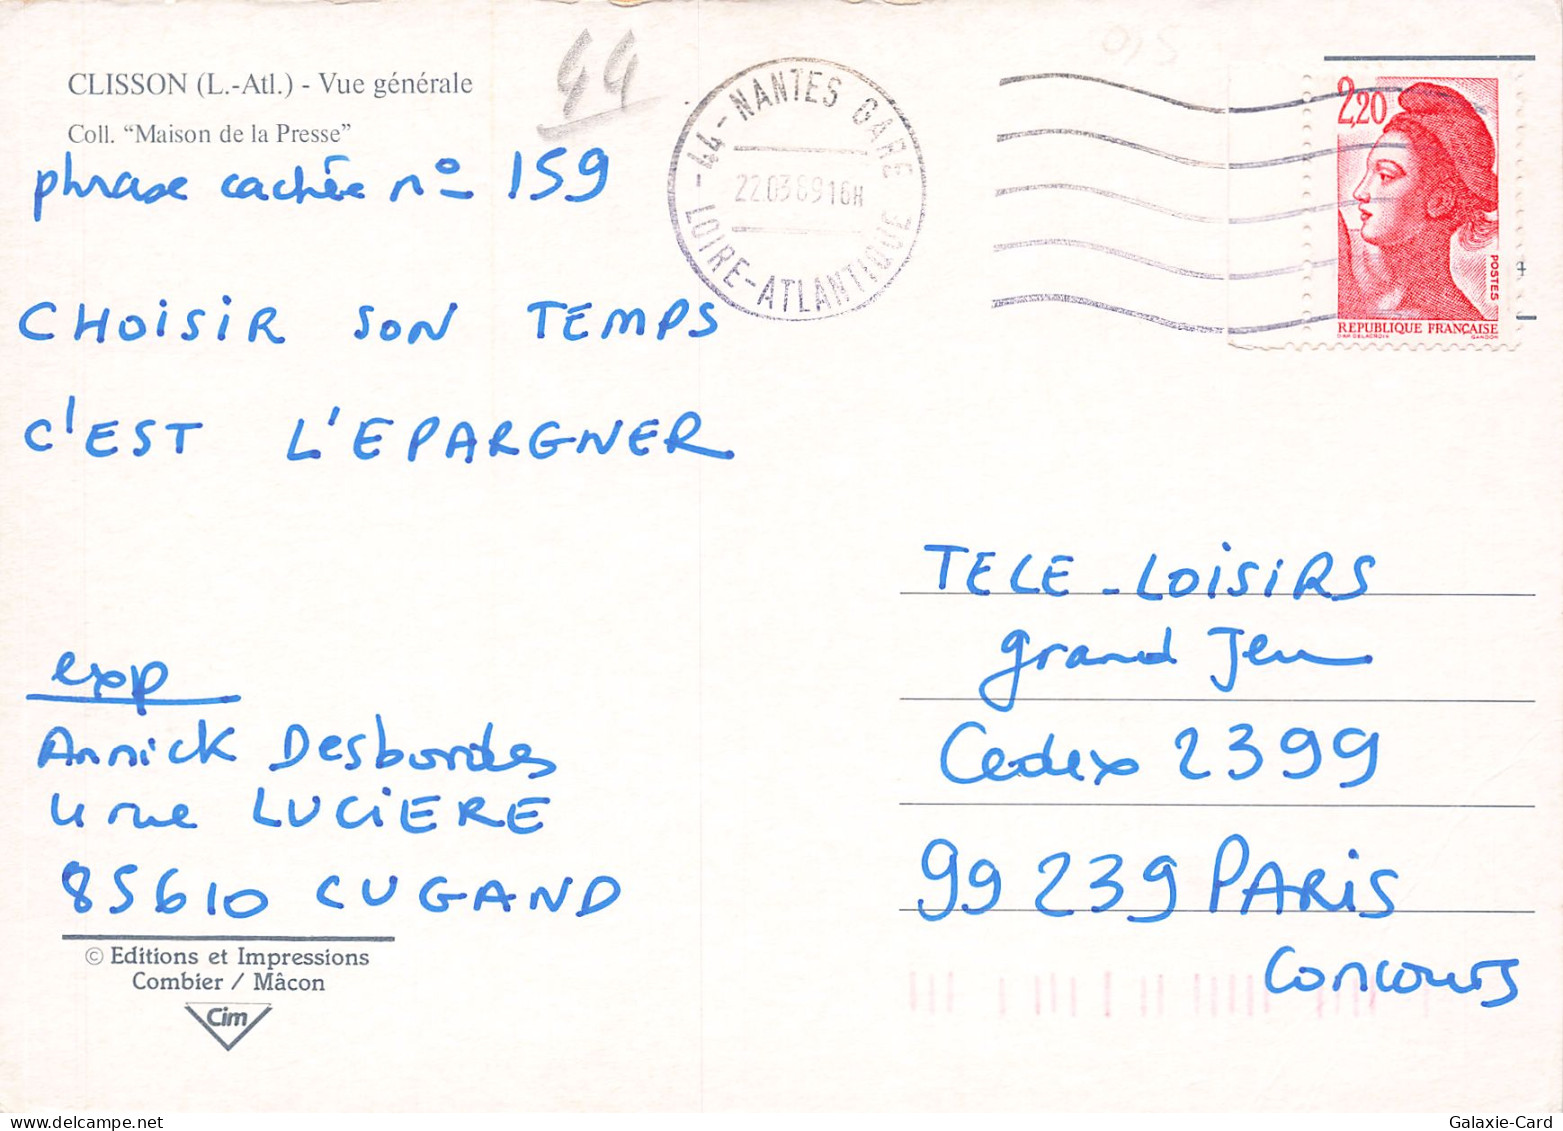 CLISSON (L.-Atl.) - Vue générale
Coll. “Maison de la Presse”
44
015
44 - NANTES GARE
22.03 89 16H
LOIRE-ATLANTIQUE
2,20
POSTES
REPUBLIQUE FRANÇAISE
D'AP. DELACROIX GANDON
phrase cachée n° 159
CHOISIR SON TEMPS
C'EST L'EPARGNER
exp
Annick Desbordes
4 rue LUCIERE
85610 CUGAND
© Editions et Impressions
Combier / Mâcon
Cim
TELE-LOISIRS
grand Jeu
Cedex 2399
99 239 PARIS
Concours
Galaxie-Card